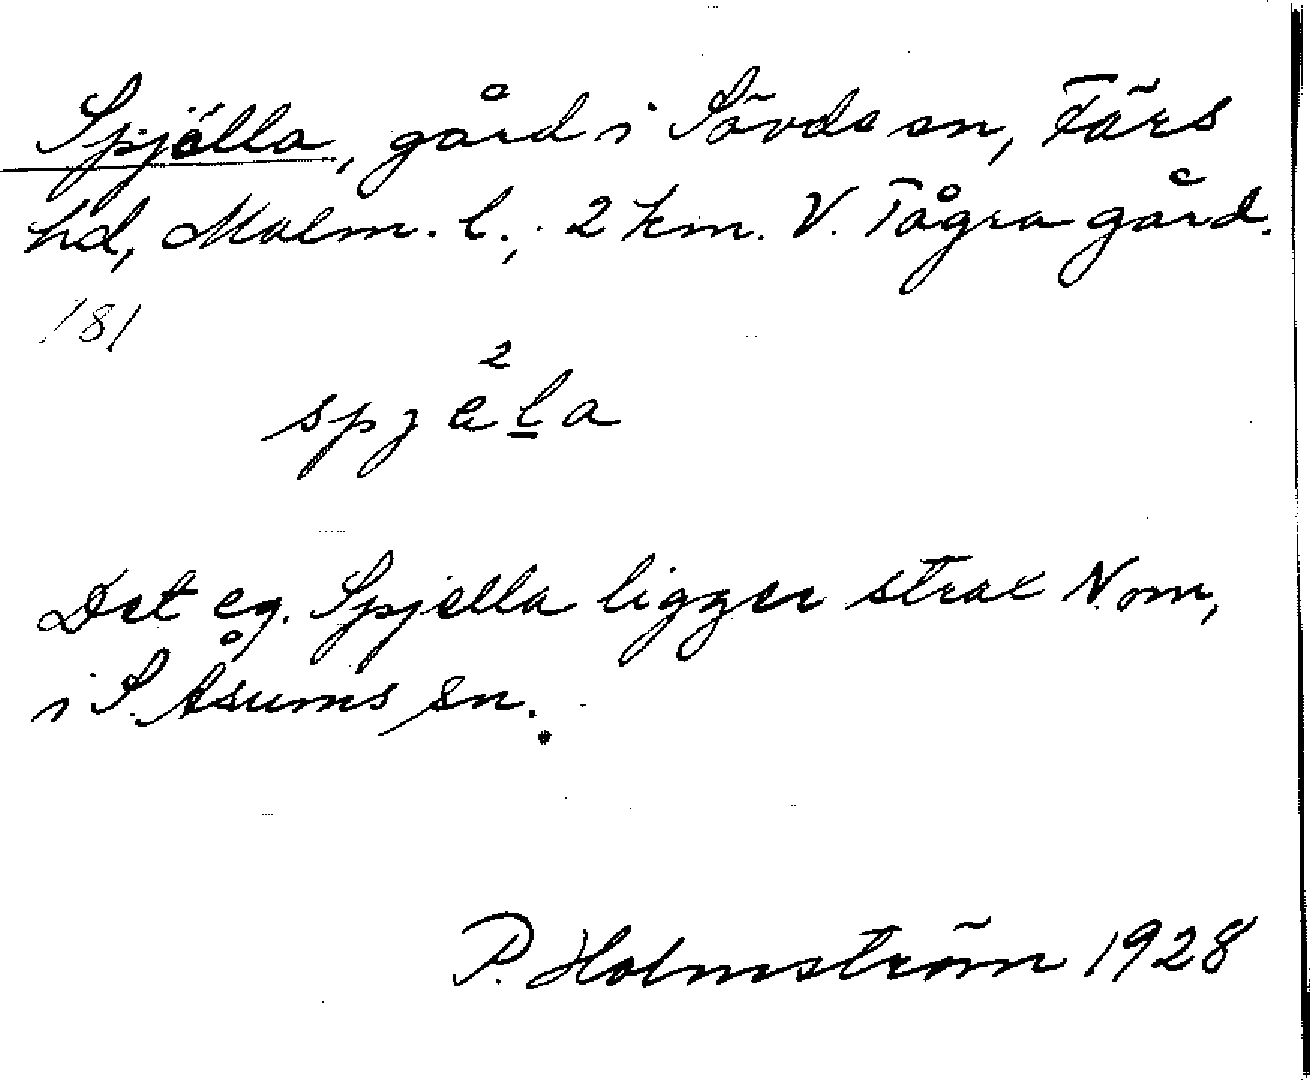 Spjälla, gård i Sövde sn, Färs
hd, Malm. l., 2 km. V. Tågra gård.
181
2
spjäla
Det eg. Spjella ligger strax N. om,
i S. Åsums sn.
P. Holmström 1928